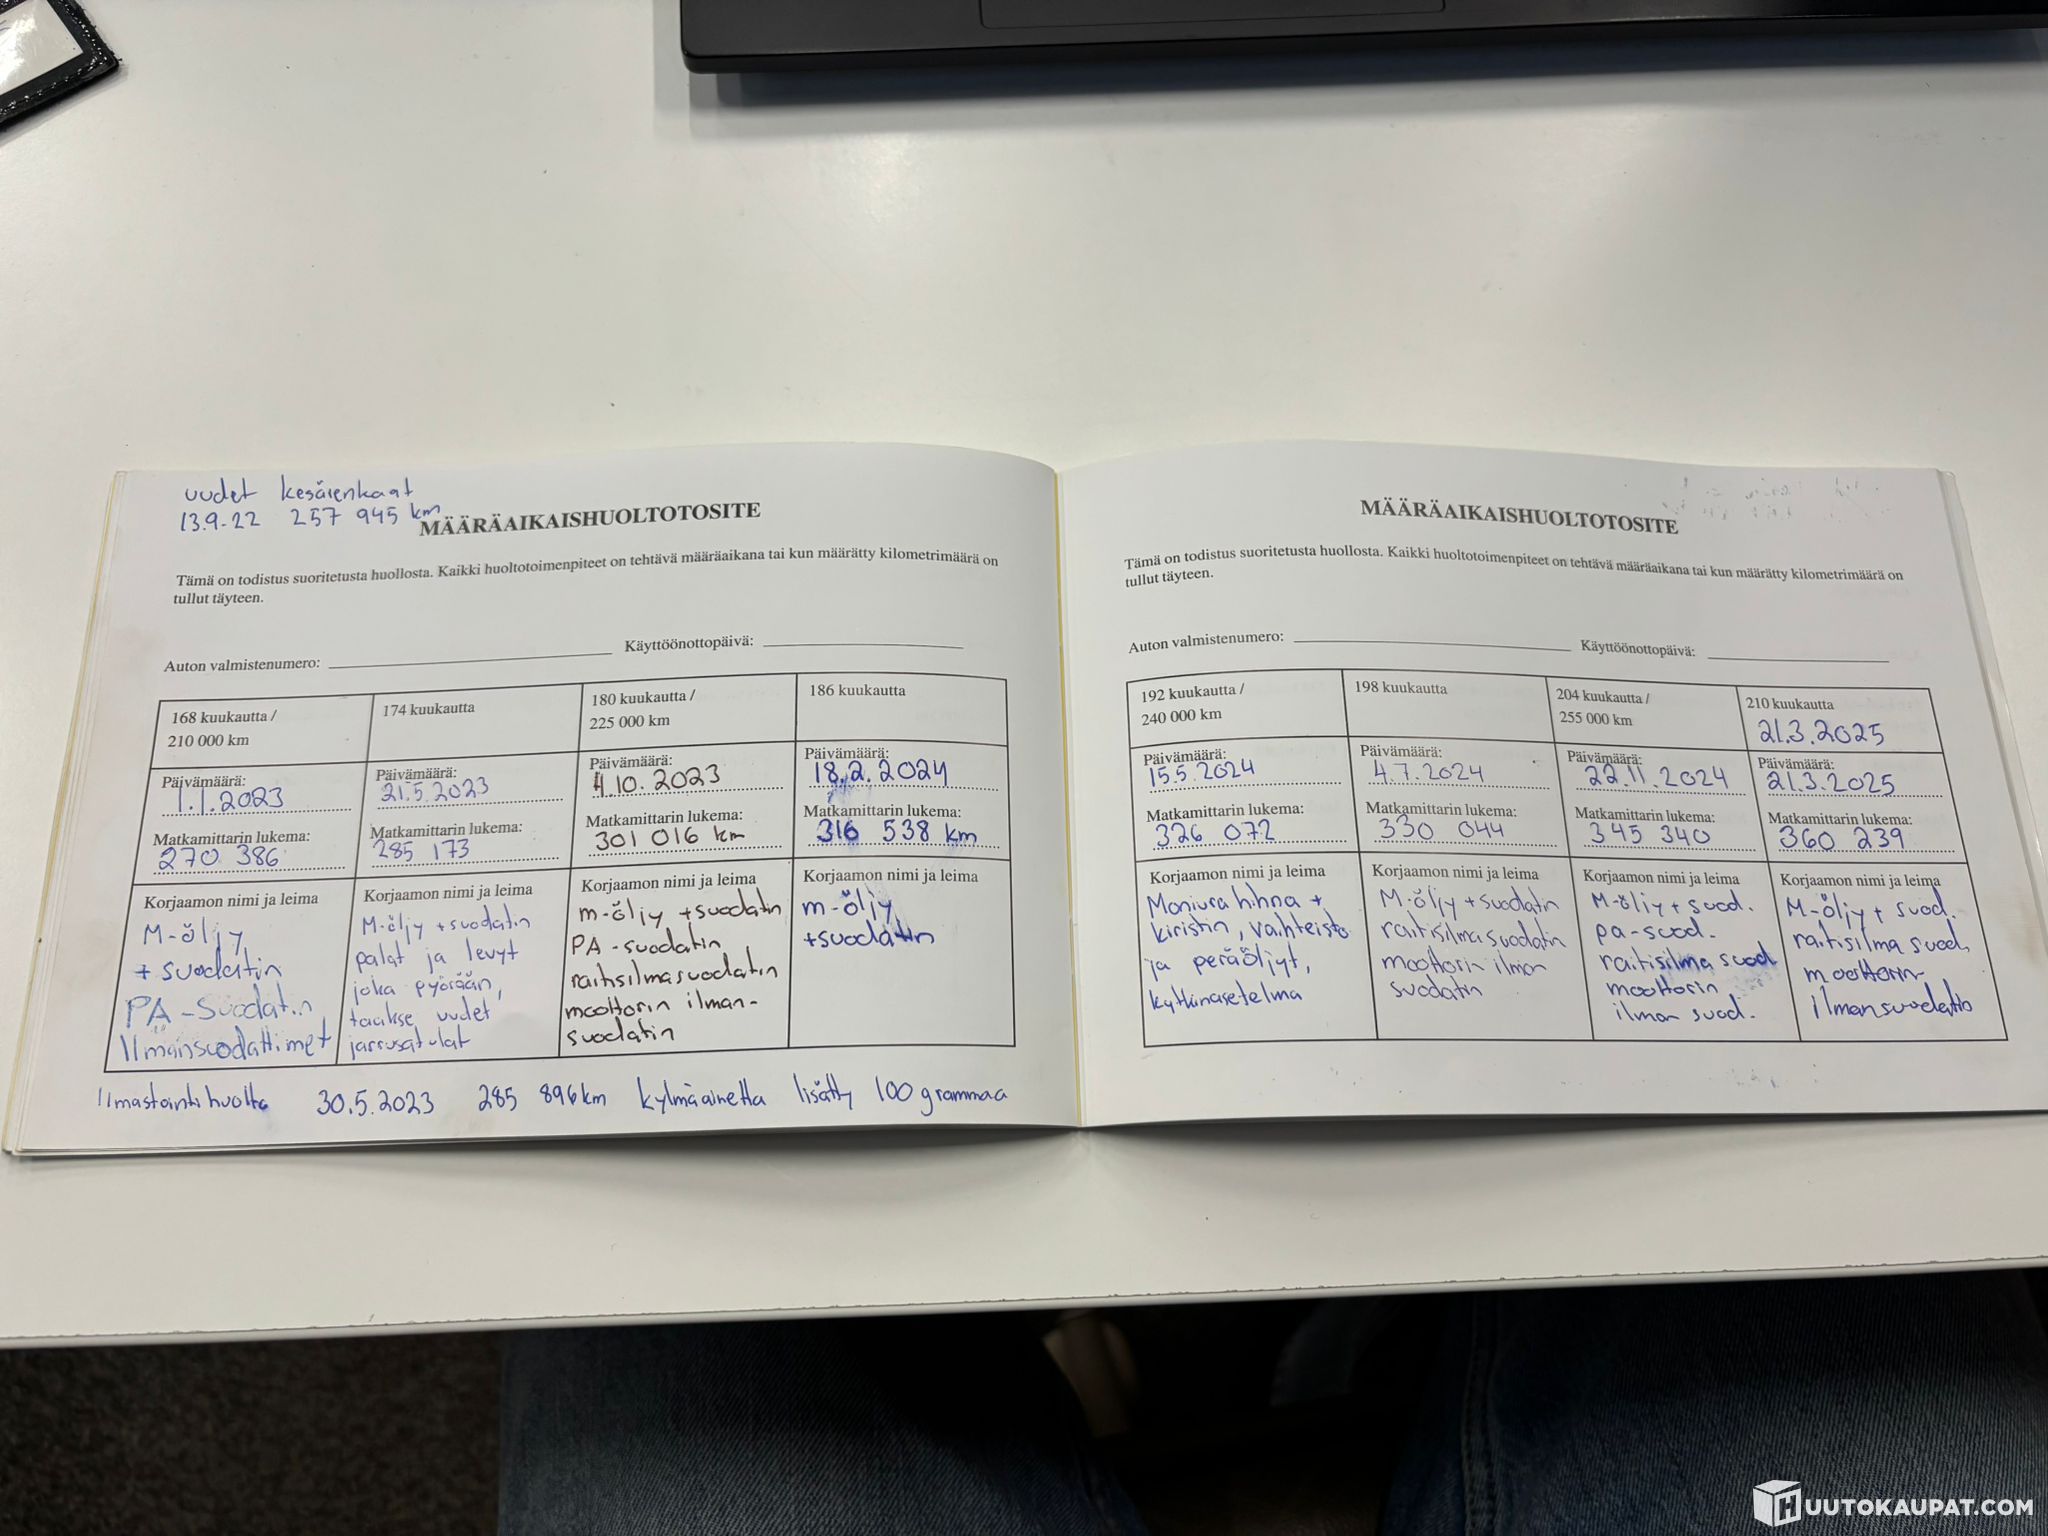 uudet kesärenkaat
13.9.22 257 945 km
MÄÄRÄAIKAISHUOLTOTOSITE
Tämä on todistus suoritetusta huollosta. Kaikki huoltotoimenpiteet on tehtävä määräaikana tai kun määrätty kilometrimäärä on
tullut täyteen.
Auton valmistenumero: Käyttöönottopäivä:
168 kuukautta /
210 000 km
Päivämäärä:
1.1.2023
Matkamittarin lukema:
270 386
Korjaamon nimi ja leima
M-öljy
+ suodatin
PA-Suodatin
Ilmansuodattimet
174 kuukautta
Päivämäärä:
21.5.2023
Matkamittarin lukema:
285 173
Korjaamon nimi ja leima
M-öljy +suodatin
palat ja levyt
joka pyörään,
taakse uudet
jarrusatulat
180 kuukautta /
225 000 km
Päivämäärä:
4.10.2023
Matkamittarin lukema:
301 016 km
Korjaamon nimi ja leima
m-öljy +suodatin
PA-suodatin
raitisilmasuodatin
moottorin ilman-
suodatin
186 kuukautta
Päivämäärä:
18.2.2024
Matkamittarin lukema:
316 538 km
Korjaamon nimi ja leima
m-öljy
+suodatin
Ilmastointihuolto 30.5.2023 285 896km kylmäainetta lisätty 100 grammaa
MÄÄRÄAIKAISHUOLTOTOSITE
Tämä on todistus suoritetusta huollosta. Kaikki huoltotoimenpiteet on tehtävä määräaikana tai kun määrätty kilometrimäärä on
tullut täyteen.
Auton valmistenumero: Käyttöönottopäivä:
192 kuukautta /
240 000 km
Päivämäärä:
15.5.2024
Matkamittarin lukema:
326 072
Korjaamon nimi ja leima
Moniurahihna +
kiristin, vaihteisto
ja peräöljyt,
kytkinasetelma
198 kuukautta
Päivämäärä:
4.7.2024
Matkamittarin lukema:
330 044
Korjaamon nimi ja leima
M-öljy +suodatin
raitisilmasuodatin
moottorin ilman
suodatin
204 kuukautta /
255 000 km
Päivämäärä:
22.11.2024
Matkamittarin lukema:
345 340
Korjaamon nimi ja leima
M-öljy + suod.
pa-suod.
raitisilma suod
moottorin
ilman suod.
210 kuukautta
21.3.2025
Päivämäärä:
21.3.2025
Matkamittarin lukema:
360 239
Korjaamon nimi ja leima
M-öljy + suod.
raitisilma suod,
moottorin
ilmansuodatin
HUUTOKAUPAT.COM